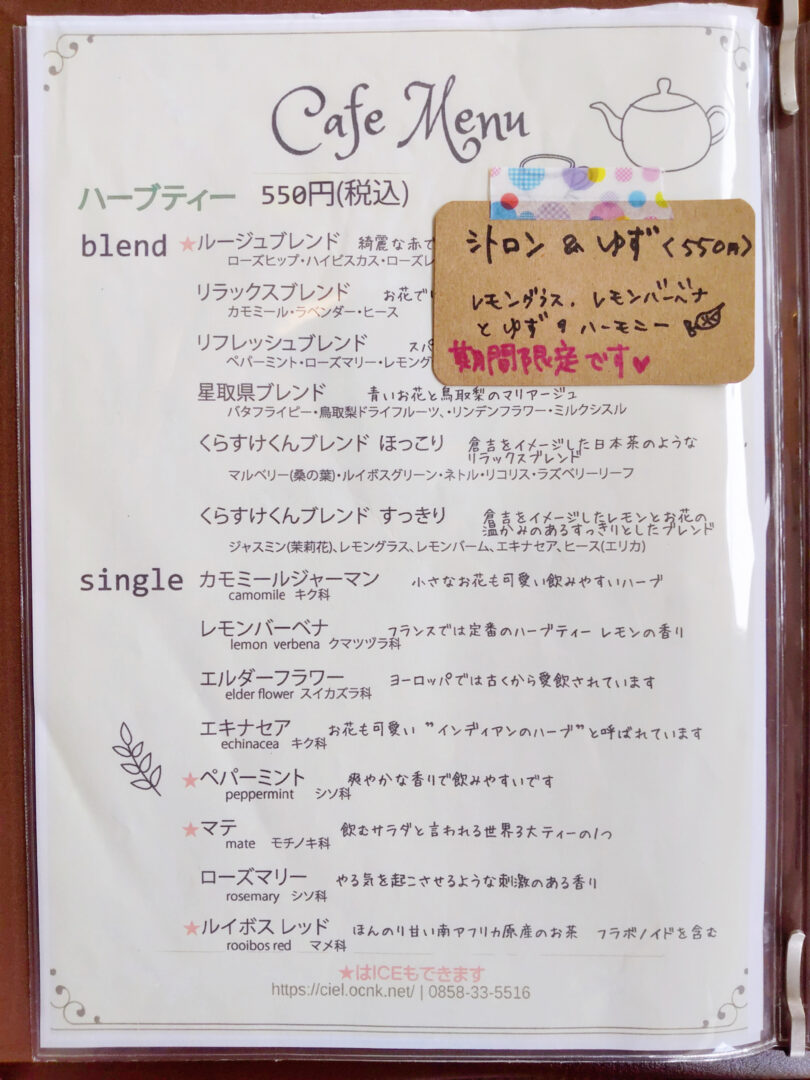 Cafe Menu
ハーブティー 550円(税込)
シトロン & ゆず〈550円〉
レモングラス、レモンバーベナ
とゆずのハーモニー
期間限定です♥
blend ★ルージュブレンド 綺麗な赤で
ローズヒップ・ハイビスカス・ローズレ
リラックスブレンド お花で
カモミール・ラベンダー・ヒース
リフレッシュブレンド スパ
ペパーミント・ローズマリー・レモング
星取県ブレンド 青いお花と鳥取梨のマリアージュ
バタフライピー・鳥取梨ドライフルーツ、・リンデンフラワー・ミルクシスル
くらすけくんブレンド ほっこり 倉吉をイメージした日本茶のような
リラックスブレンド
マルベリー(桑の葉)・ルイボスグリーン・ネトル・リコリス・ラズベリーリーフ
くらすけくんブレンド すっきり 倉吉をイメージしたレモンとお花の
温かみのあるすっきりとしたブレンド
ジャスミン(茉莉花)、レモングラス、レモンバーム、エキナセア、ヒース(エリカ)
single カモミールジャーマン 小さなお花も可愛い飲みやすいハーブ
camomile キク科
レモンバーベナ フランスでは定番のハーブティー レモンの香り
lemon verbena クマツヅラ科
エルダーフラワー ヨーロッパでは古くから愛飲されています
elder flower スイカズラ科
エキナセア お花も可愛い "インディアンのハーブ"と呼ばれています
echinacea キク科
★ペパーミント 爽やかな香りで飲みやすいです
peppermint シソ科
★マテ 飲むサラダと言われる世界3大ティーの1つ
mate モチノキ科
ローズマリー やる気を起こさせるような刺激のある香り
rosemary シソ科
★ルイボス レッド ほんのり甘い南アフリカ原産のお茶 フラボノイドを含む
rooibos red マメ科
★はICEもできます
https://ciel.ocnk.net/ | 0858-33-5516